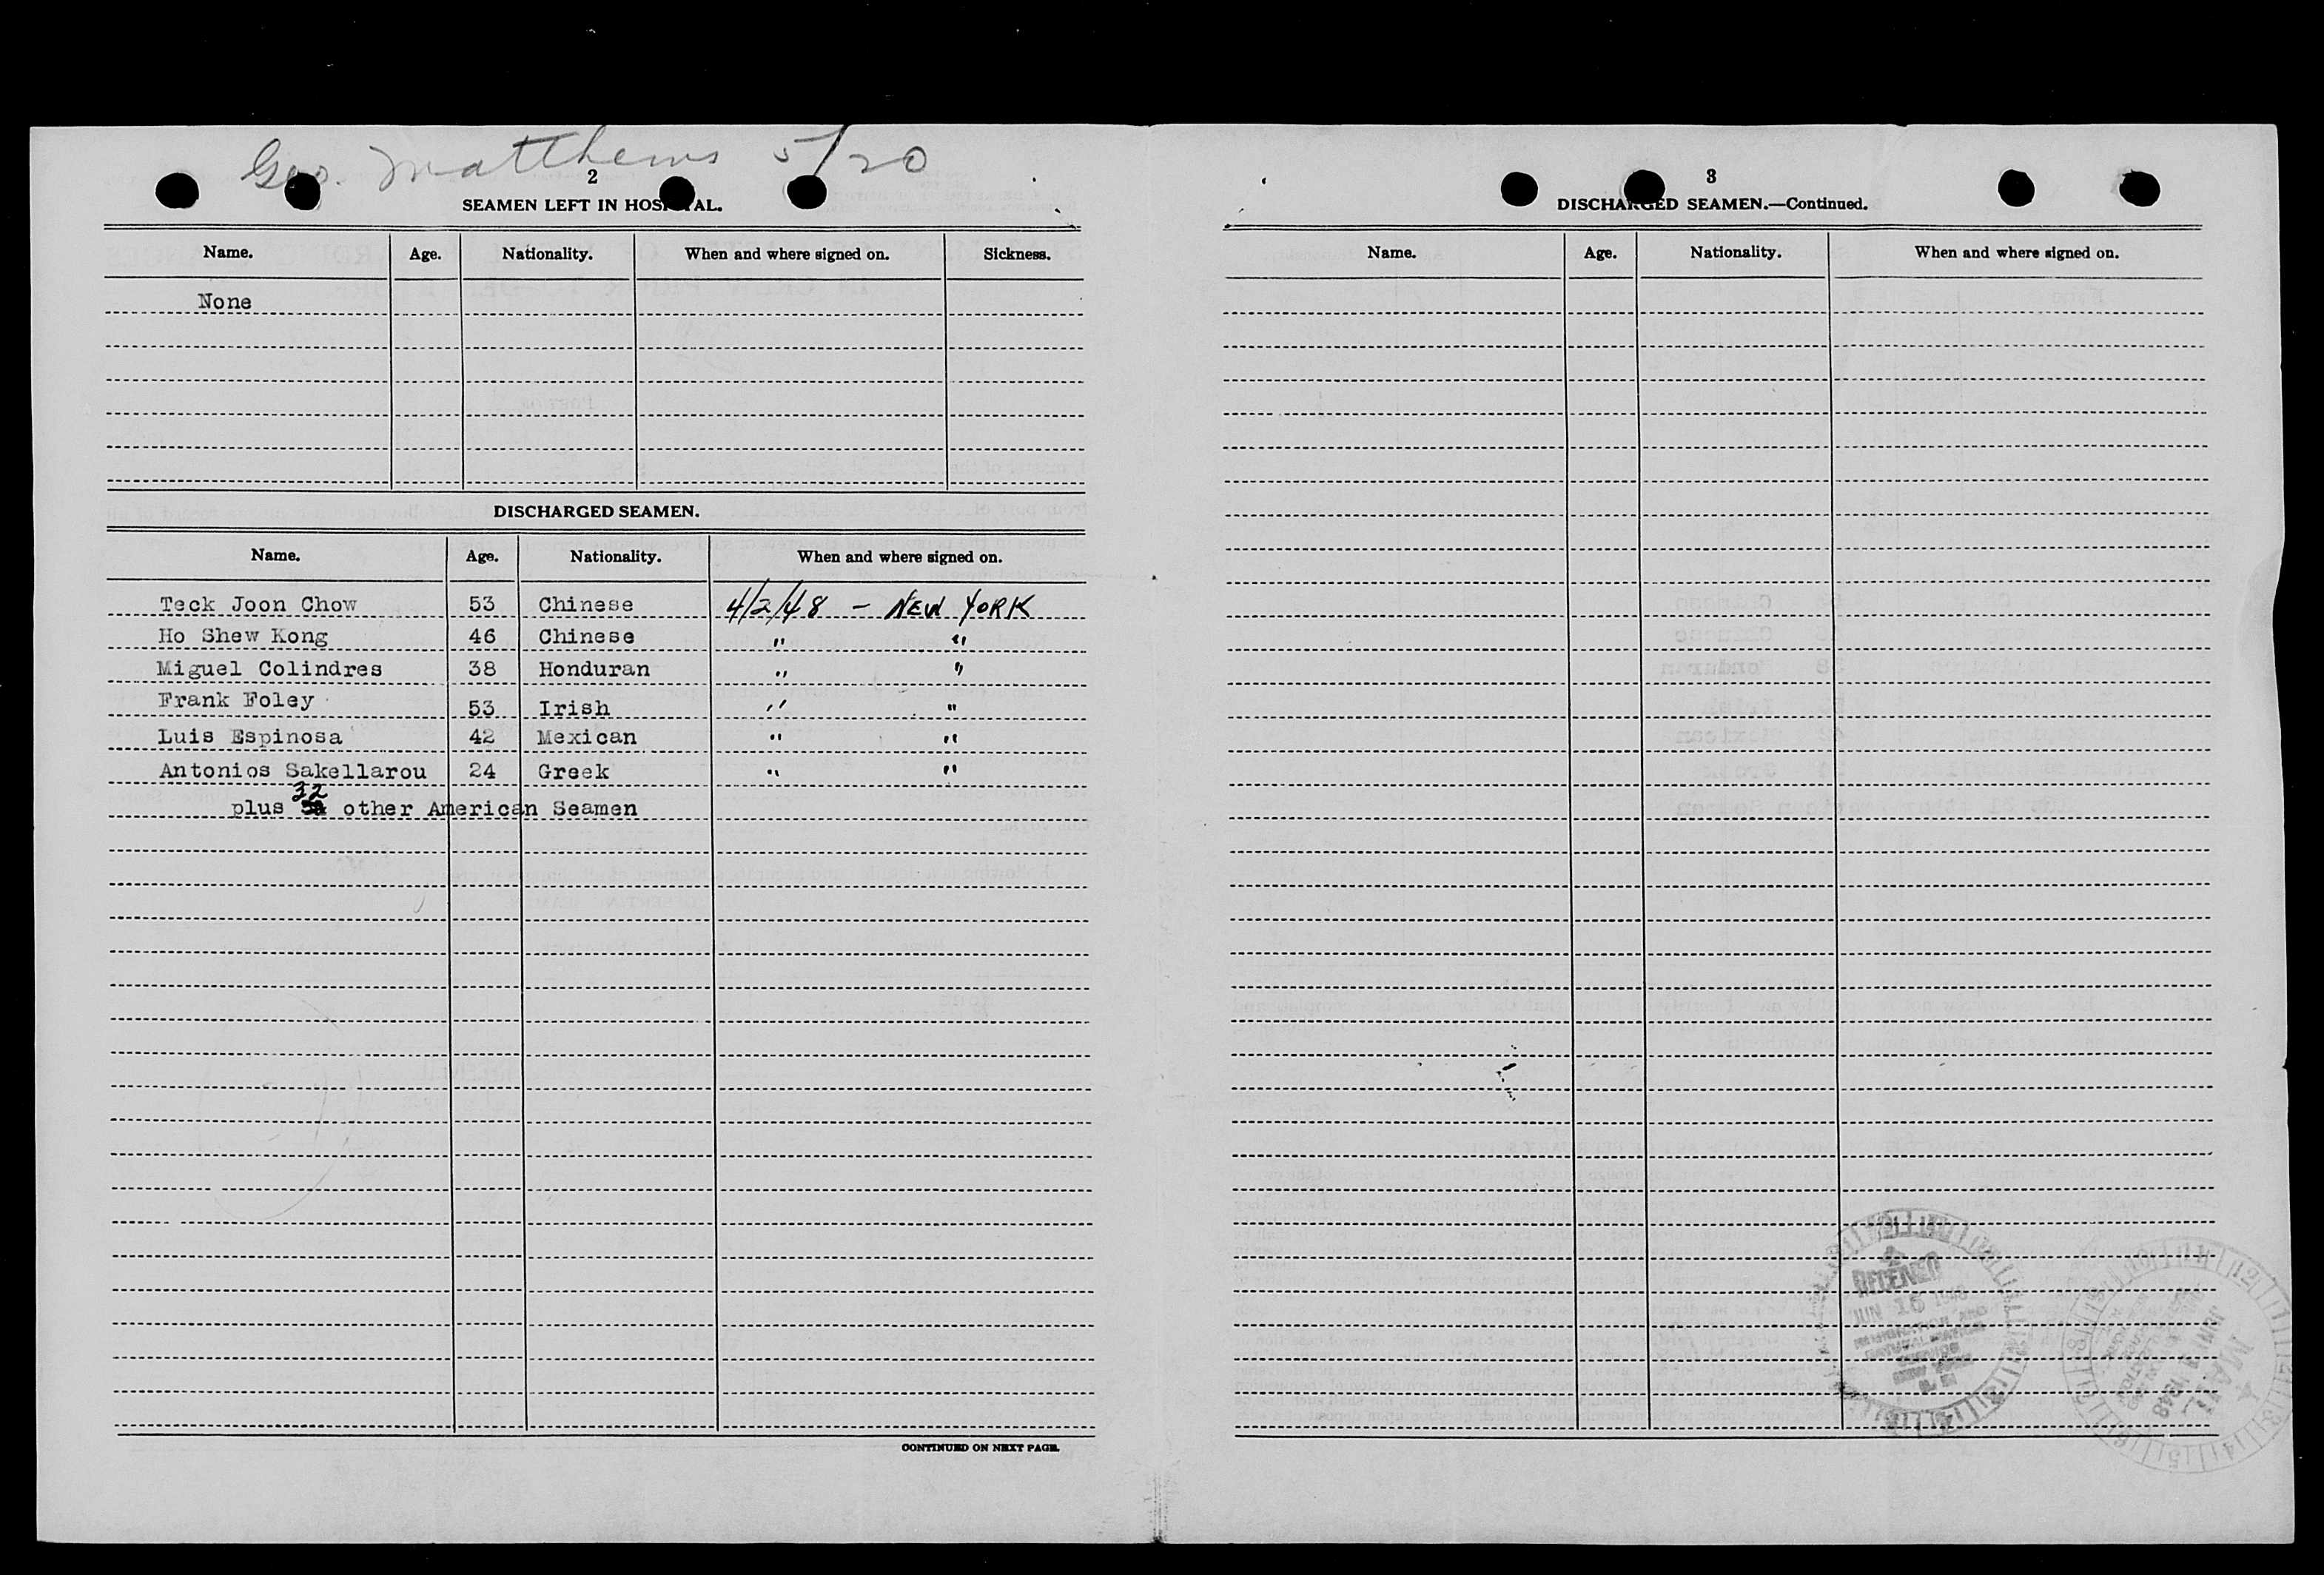 Geo. Matthews 5/20
2
SEAMEN LEFT IN HOSPITAL.
Name. Age. Nationality. When and where signed on. Sickness.
None
DISCHARGED SEAMEN.
Name. Age. Nationality. When and where signed on.
Teck Joon Chow 53 Chinese 4/2/48 - NEW YORK
Ho Shew Kong 46 Chinese " "
Miguel Colindres 38 Honduran " "
Frank Foley 53 Irish " "
Luis Espinosa 42 Mexican " "
Antonios Sakellarou 24 Greek " "
plus 32 other American Seamen
CONTINUED ON NEXT PAGE.
3
DISCHARGED SEAMEN.—Continued.
Name. Age. Nationality. When and where signed on.
RECEIVED
JUN 16 1948
IMMIGRATION AND
NATURALIZATION
SERVICE
NEW YORK